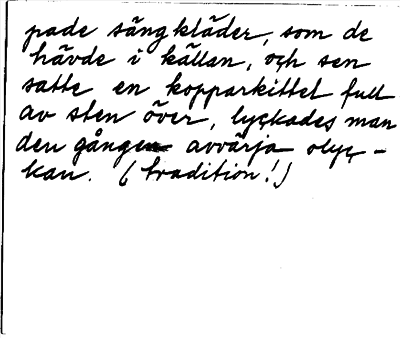 pade sängkläder, som de
hävde i källan, och sen
satte en kopparkittel full
av sten över, lyckades man
den gången avvärja olyc-
kan. (tradition!)